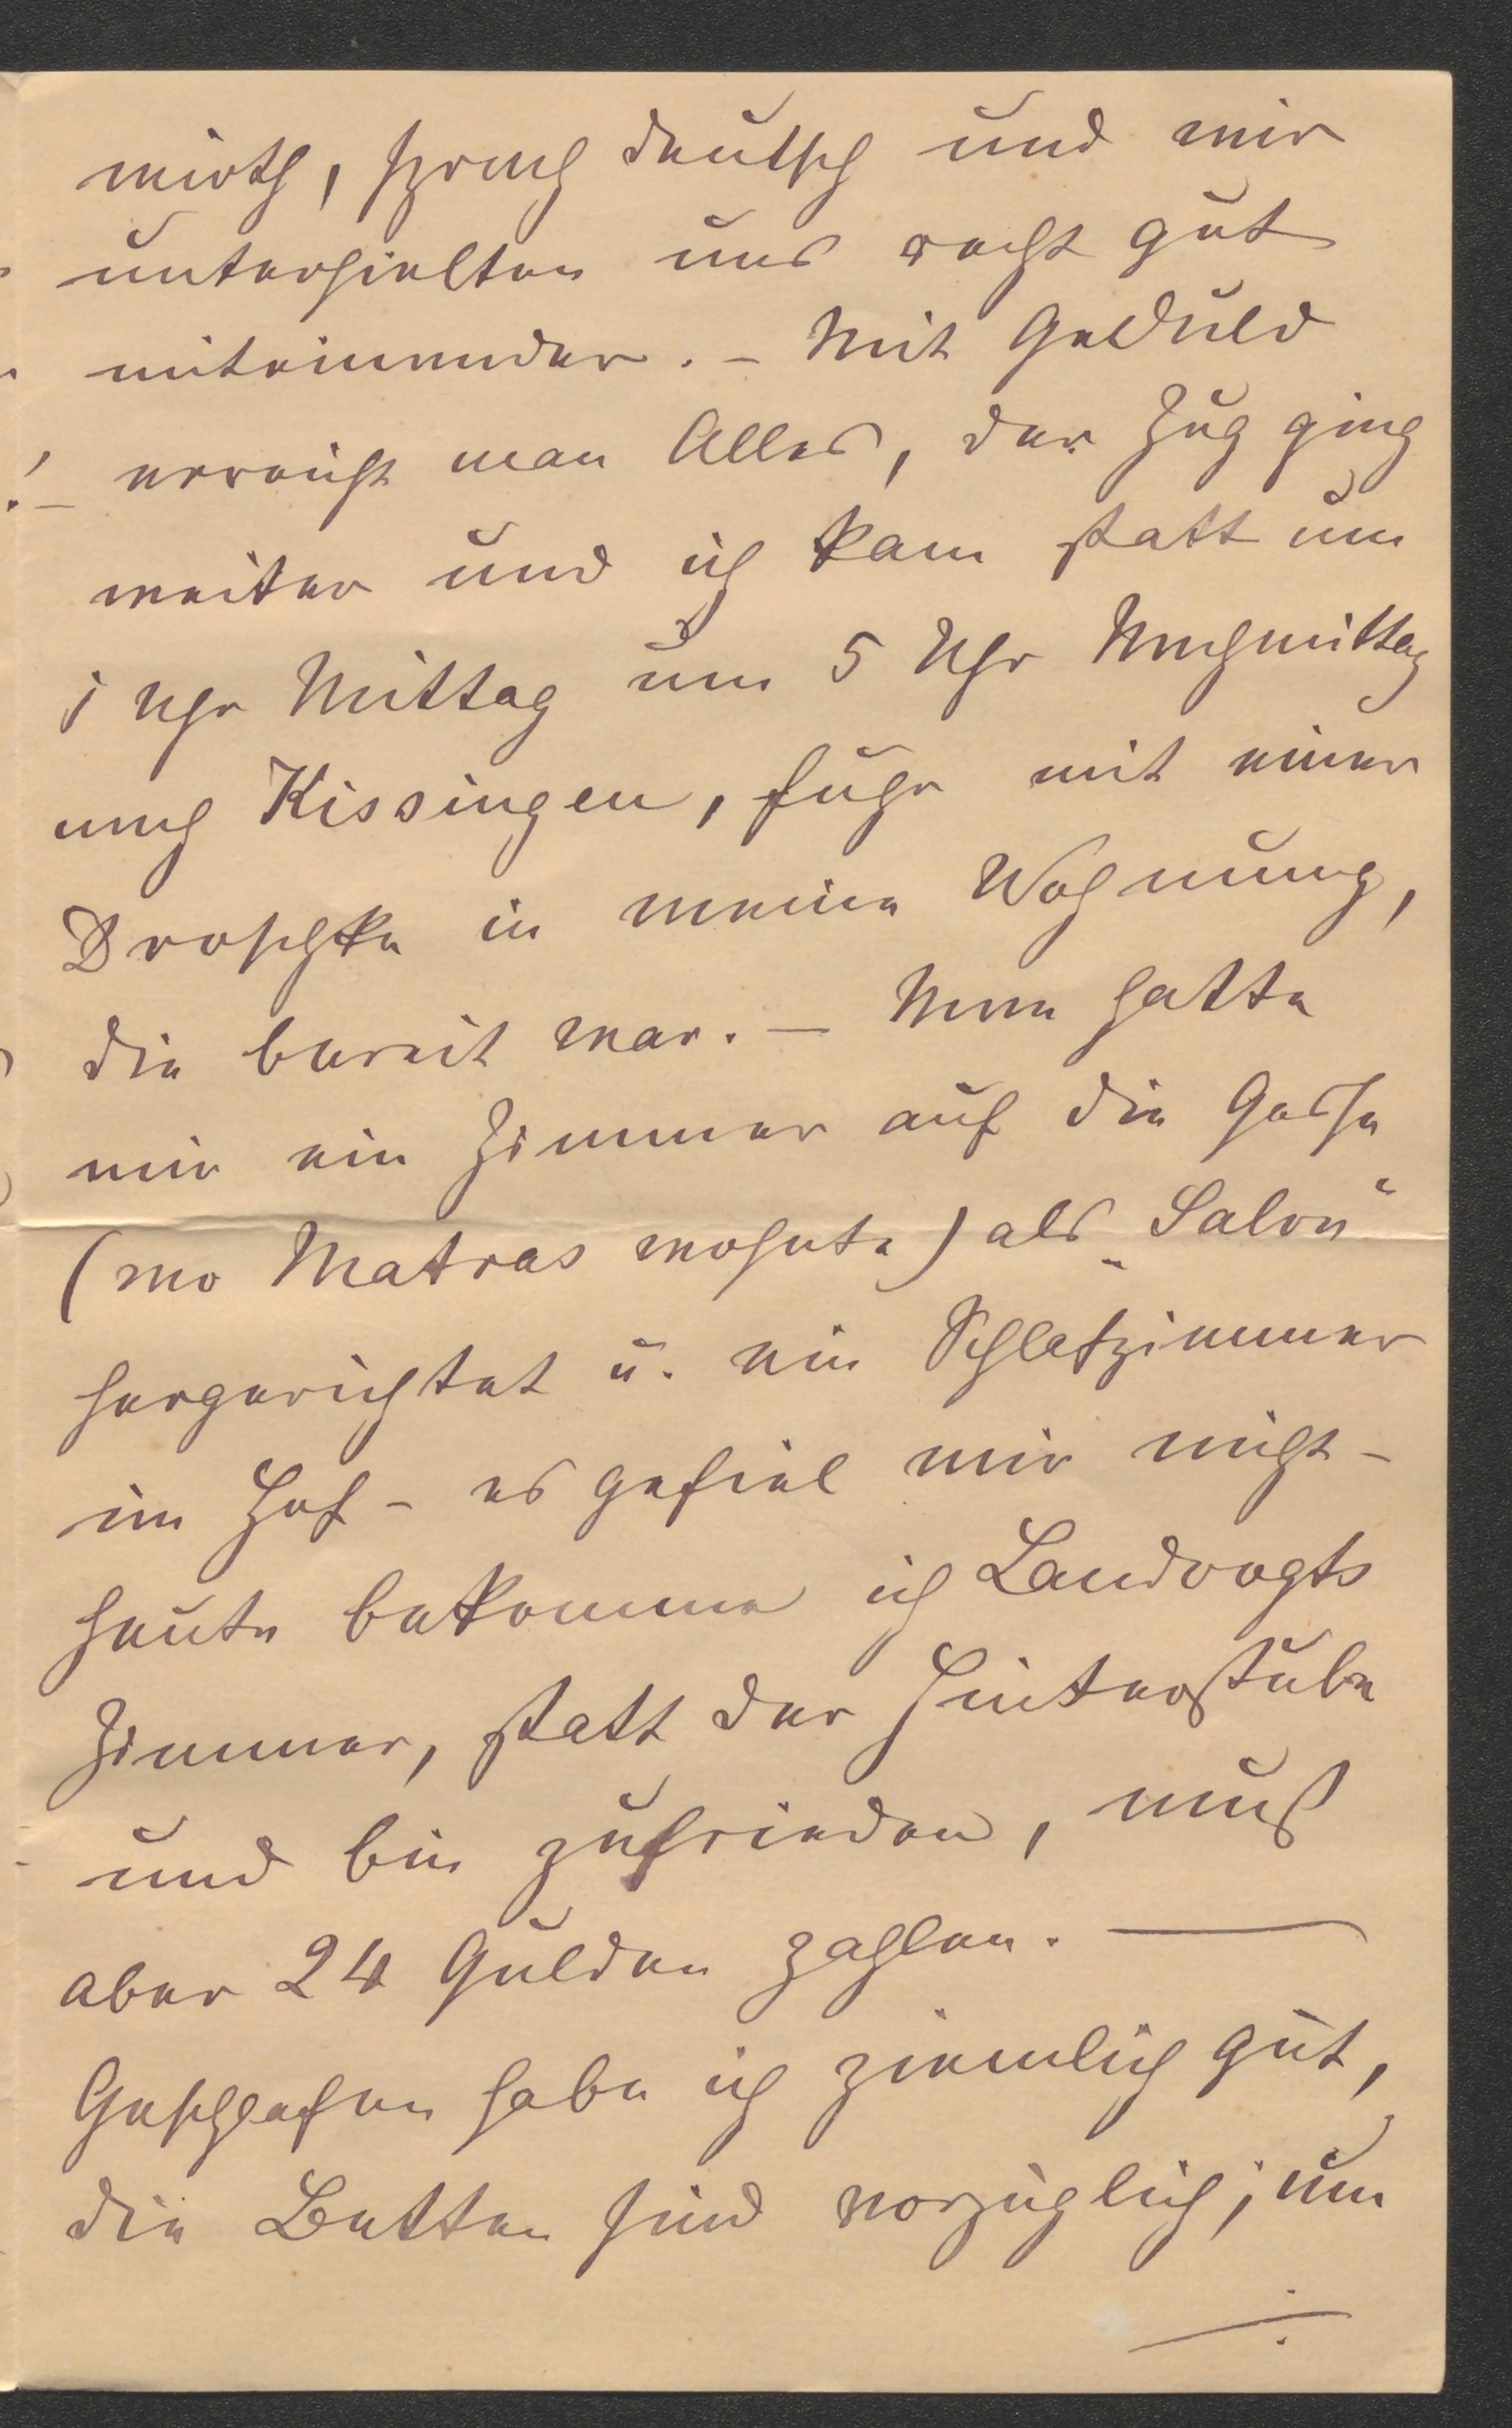 wirth, sprach deutsch und wir
unterhielten uns recht gut
miteinander. – Mit Geduld
erreicht man Alles, der Zug ging
weiter und ich kam statt um
1 Uhr Mittag um 5 Uhr Nachmittag
nach Kissingen, fuhr mit einer
Droschke in meine Wohnung,
die bereit war. – Man hatte
mir ein Zimmer auf die Gasse
(wo Matras wohnte) als „Salon“
hergerichtet u. ein Schlafzimmer
im Hof – es gefiel mir nicht –
heute bekomme ich Landvogts
Zimmer, statt der Hinterstube
und bin zufrieden, muß
aber 24 Gulden zahlen. —
Geschlafen habe ich ziemlich gut,
die Betten sind vorzüglich; um